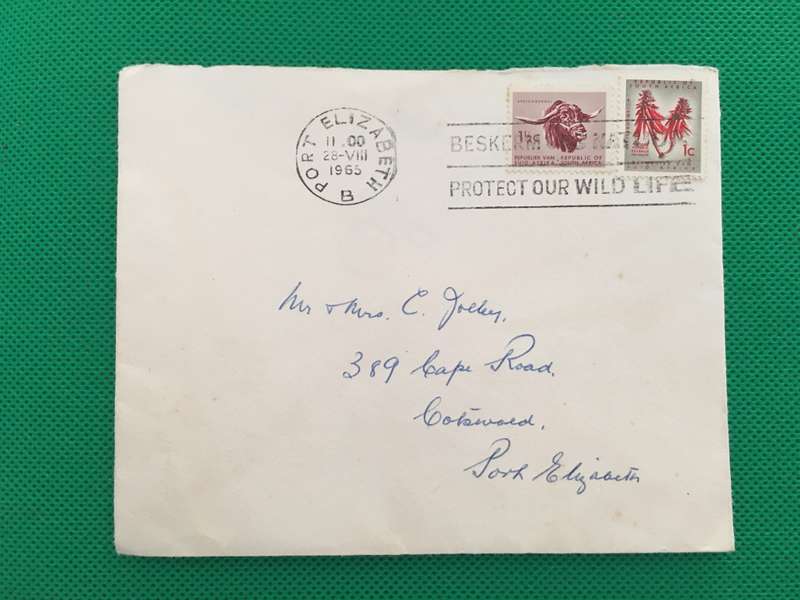 PORT ELIZABETH
11 .00
28-VIII
1965
B
1½c
REPUBLIEK VAN REPUBLIC OF
SUID-AFRIKA SOUTH AFRICA
REPUBLIC OF
SOUTH AFRICA
1c
BESKERM
PROTECT OUR WILD LIFE
Mr & Mrs. C. Jolley,
389 Cape Road,
Cotswold,
Port Elizabeth